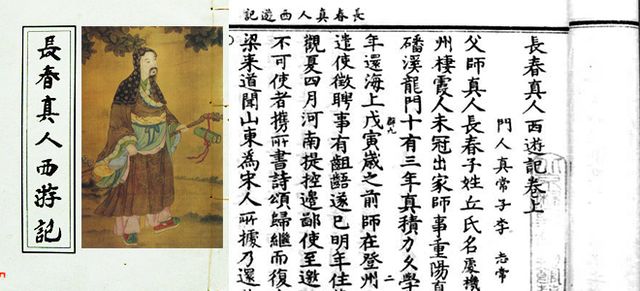 長春真人西游記
長春真人西遊記
長春真人西遊記卷上
門人真常子李志常
父師真人長春子姓丘氏名處機
州棲霞人未冠出家師事重陽真
磻溪龍門十有三年真積力久學
年還海上戊寅歲之前師在登州
遣使徵聘事有齟齬遂已明年住
觀夏四月河南提控邊鄙使至邀
不可使者攜所書詩頌歸繼而復
梁來道聞山東為宋人所據乃還